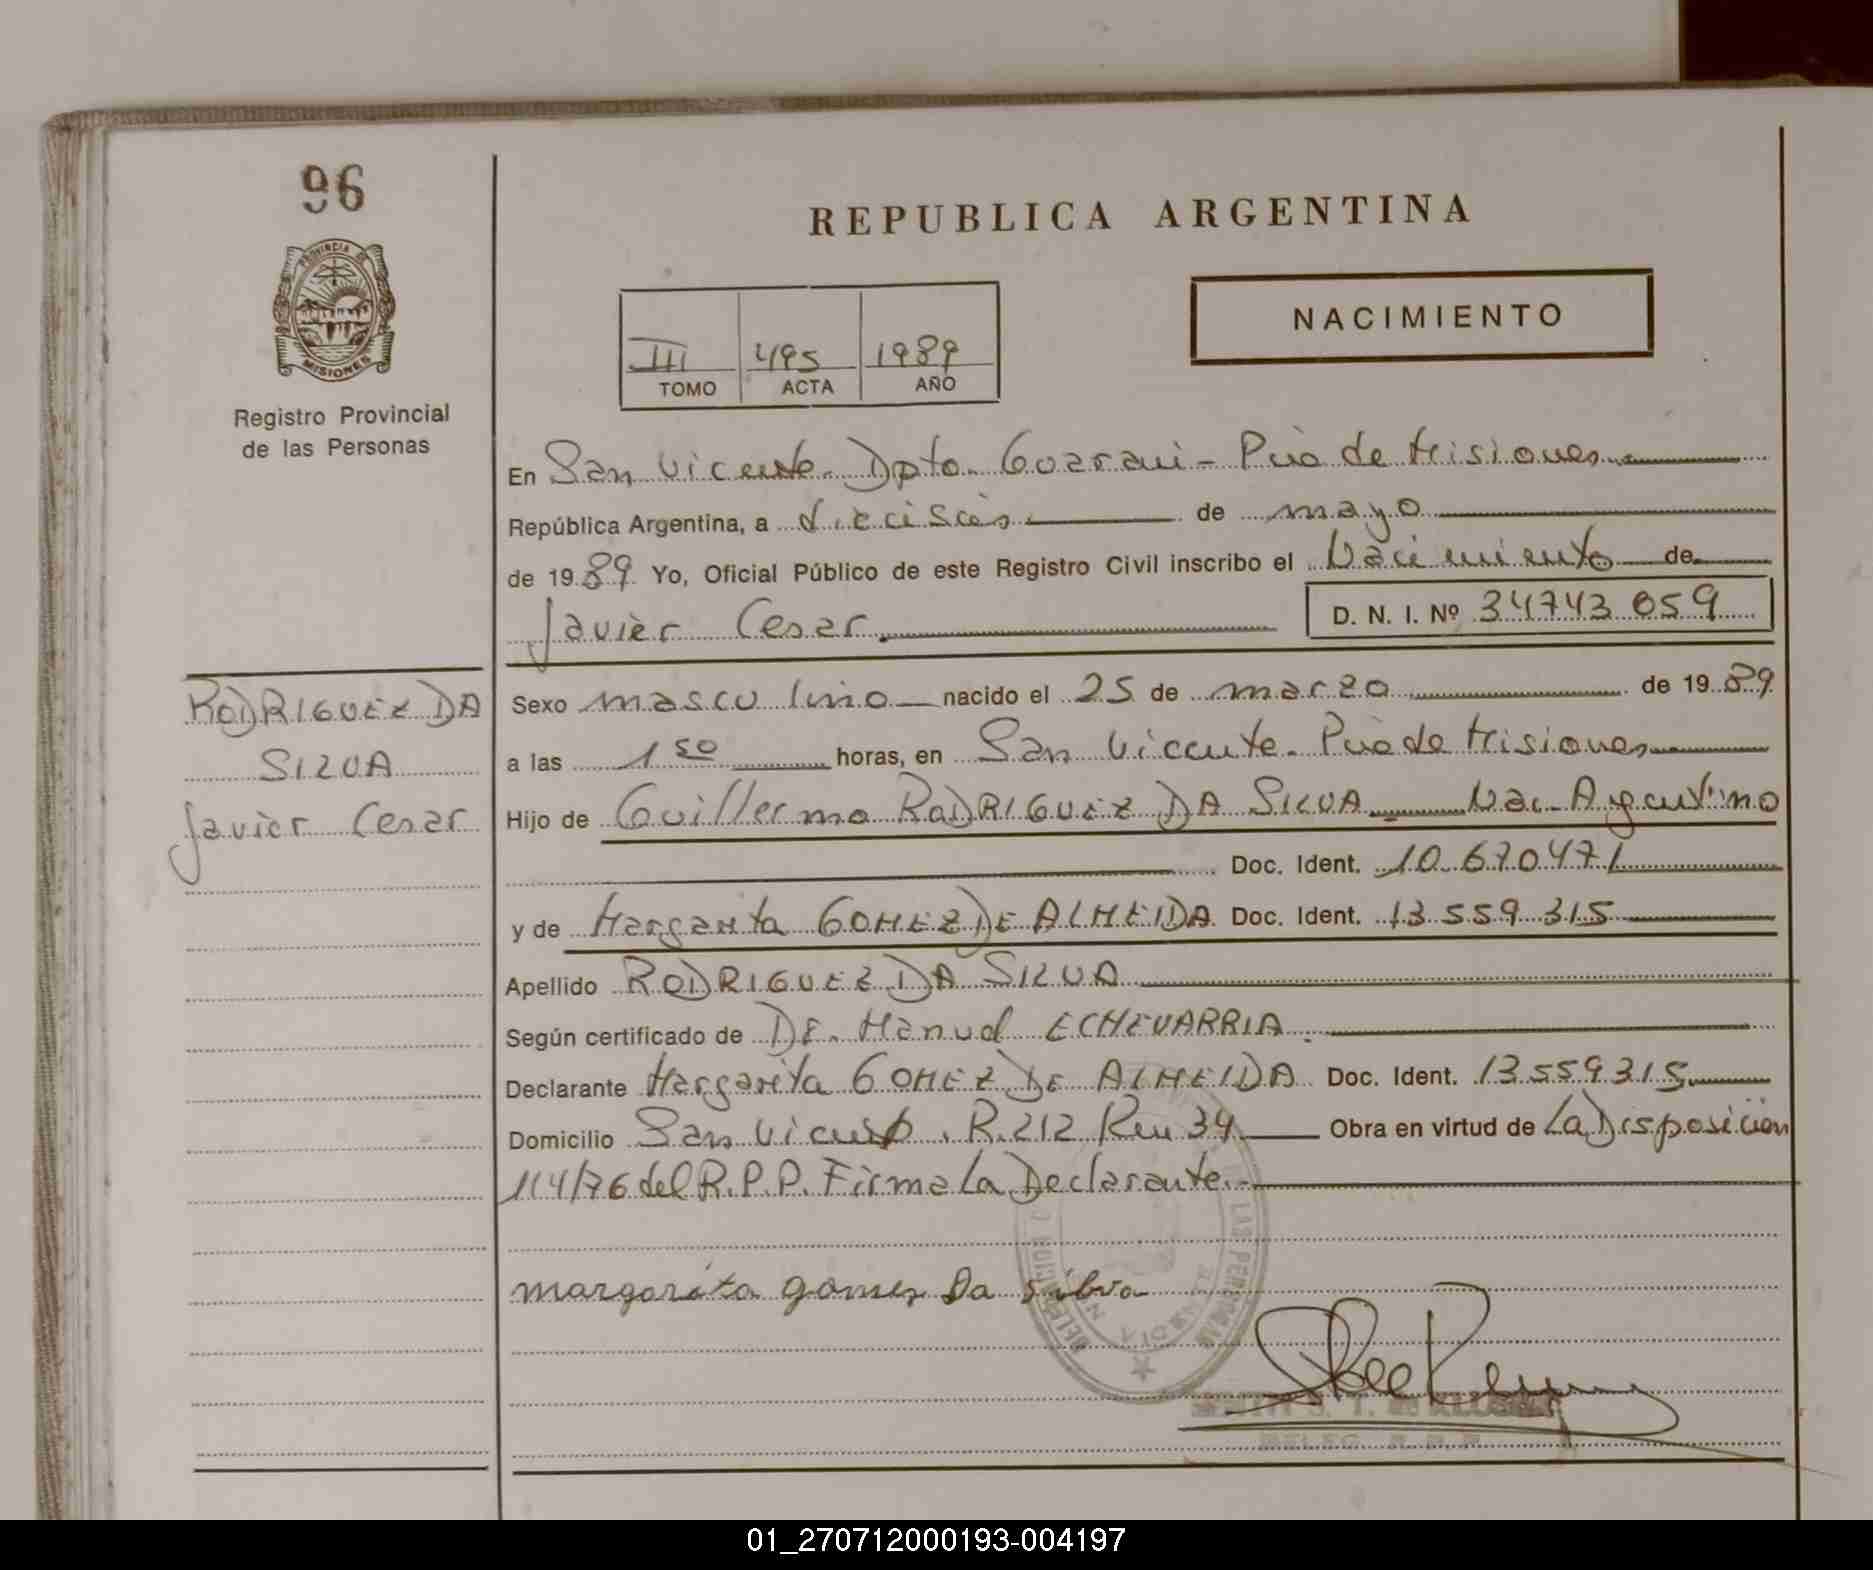 96
PROVINCIA DE
MISIONES
Registro Provincial
de las Personas
REPUBLICA ARGENTINA
NACIMIENTO
III 495 1989
TOMO ACTA AÑO
En San Vicente. Dpto. Guarani - Pcia de Misiones
República Argentina, a dieciseis de mayo
de 1989 Yo, Oficial Público de este Registro Civil inscribo el Nacimiento de
Javier Cesar D. N. I. Nº 34743.059
RODRIGUEZ DA
SILVA
Javier Cesar
Sexo masculino nacido el 25 de marzo de 1989
a las 1 50 horas, en San Vicente. Pcia de Misiones
Hijo de Guillermo RODRIGUEZ DA SILVA Nac. Argentino
Doc. Ident. 10.670471
y de Margarita GOMEZ DE ALMEIDA Doc. Ident. 13.559.315
Apellido RODRIGUEZ DA SILVA
Según certificado de DR. Manuel ECHEVARRIA
Declarante Margarita GOMEZ DE ALMEIDA Doc. Ident. 13559315
Domicilio San Vicente. R.212 Km 34 Obra en virtud de La Disposición
114/76 del R.P.P. Firma La Declarante.
margarita gomes Da silva
LAS PERSONAS
01_270712000193-004197